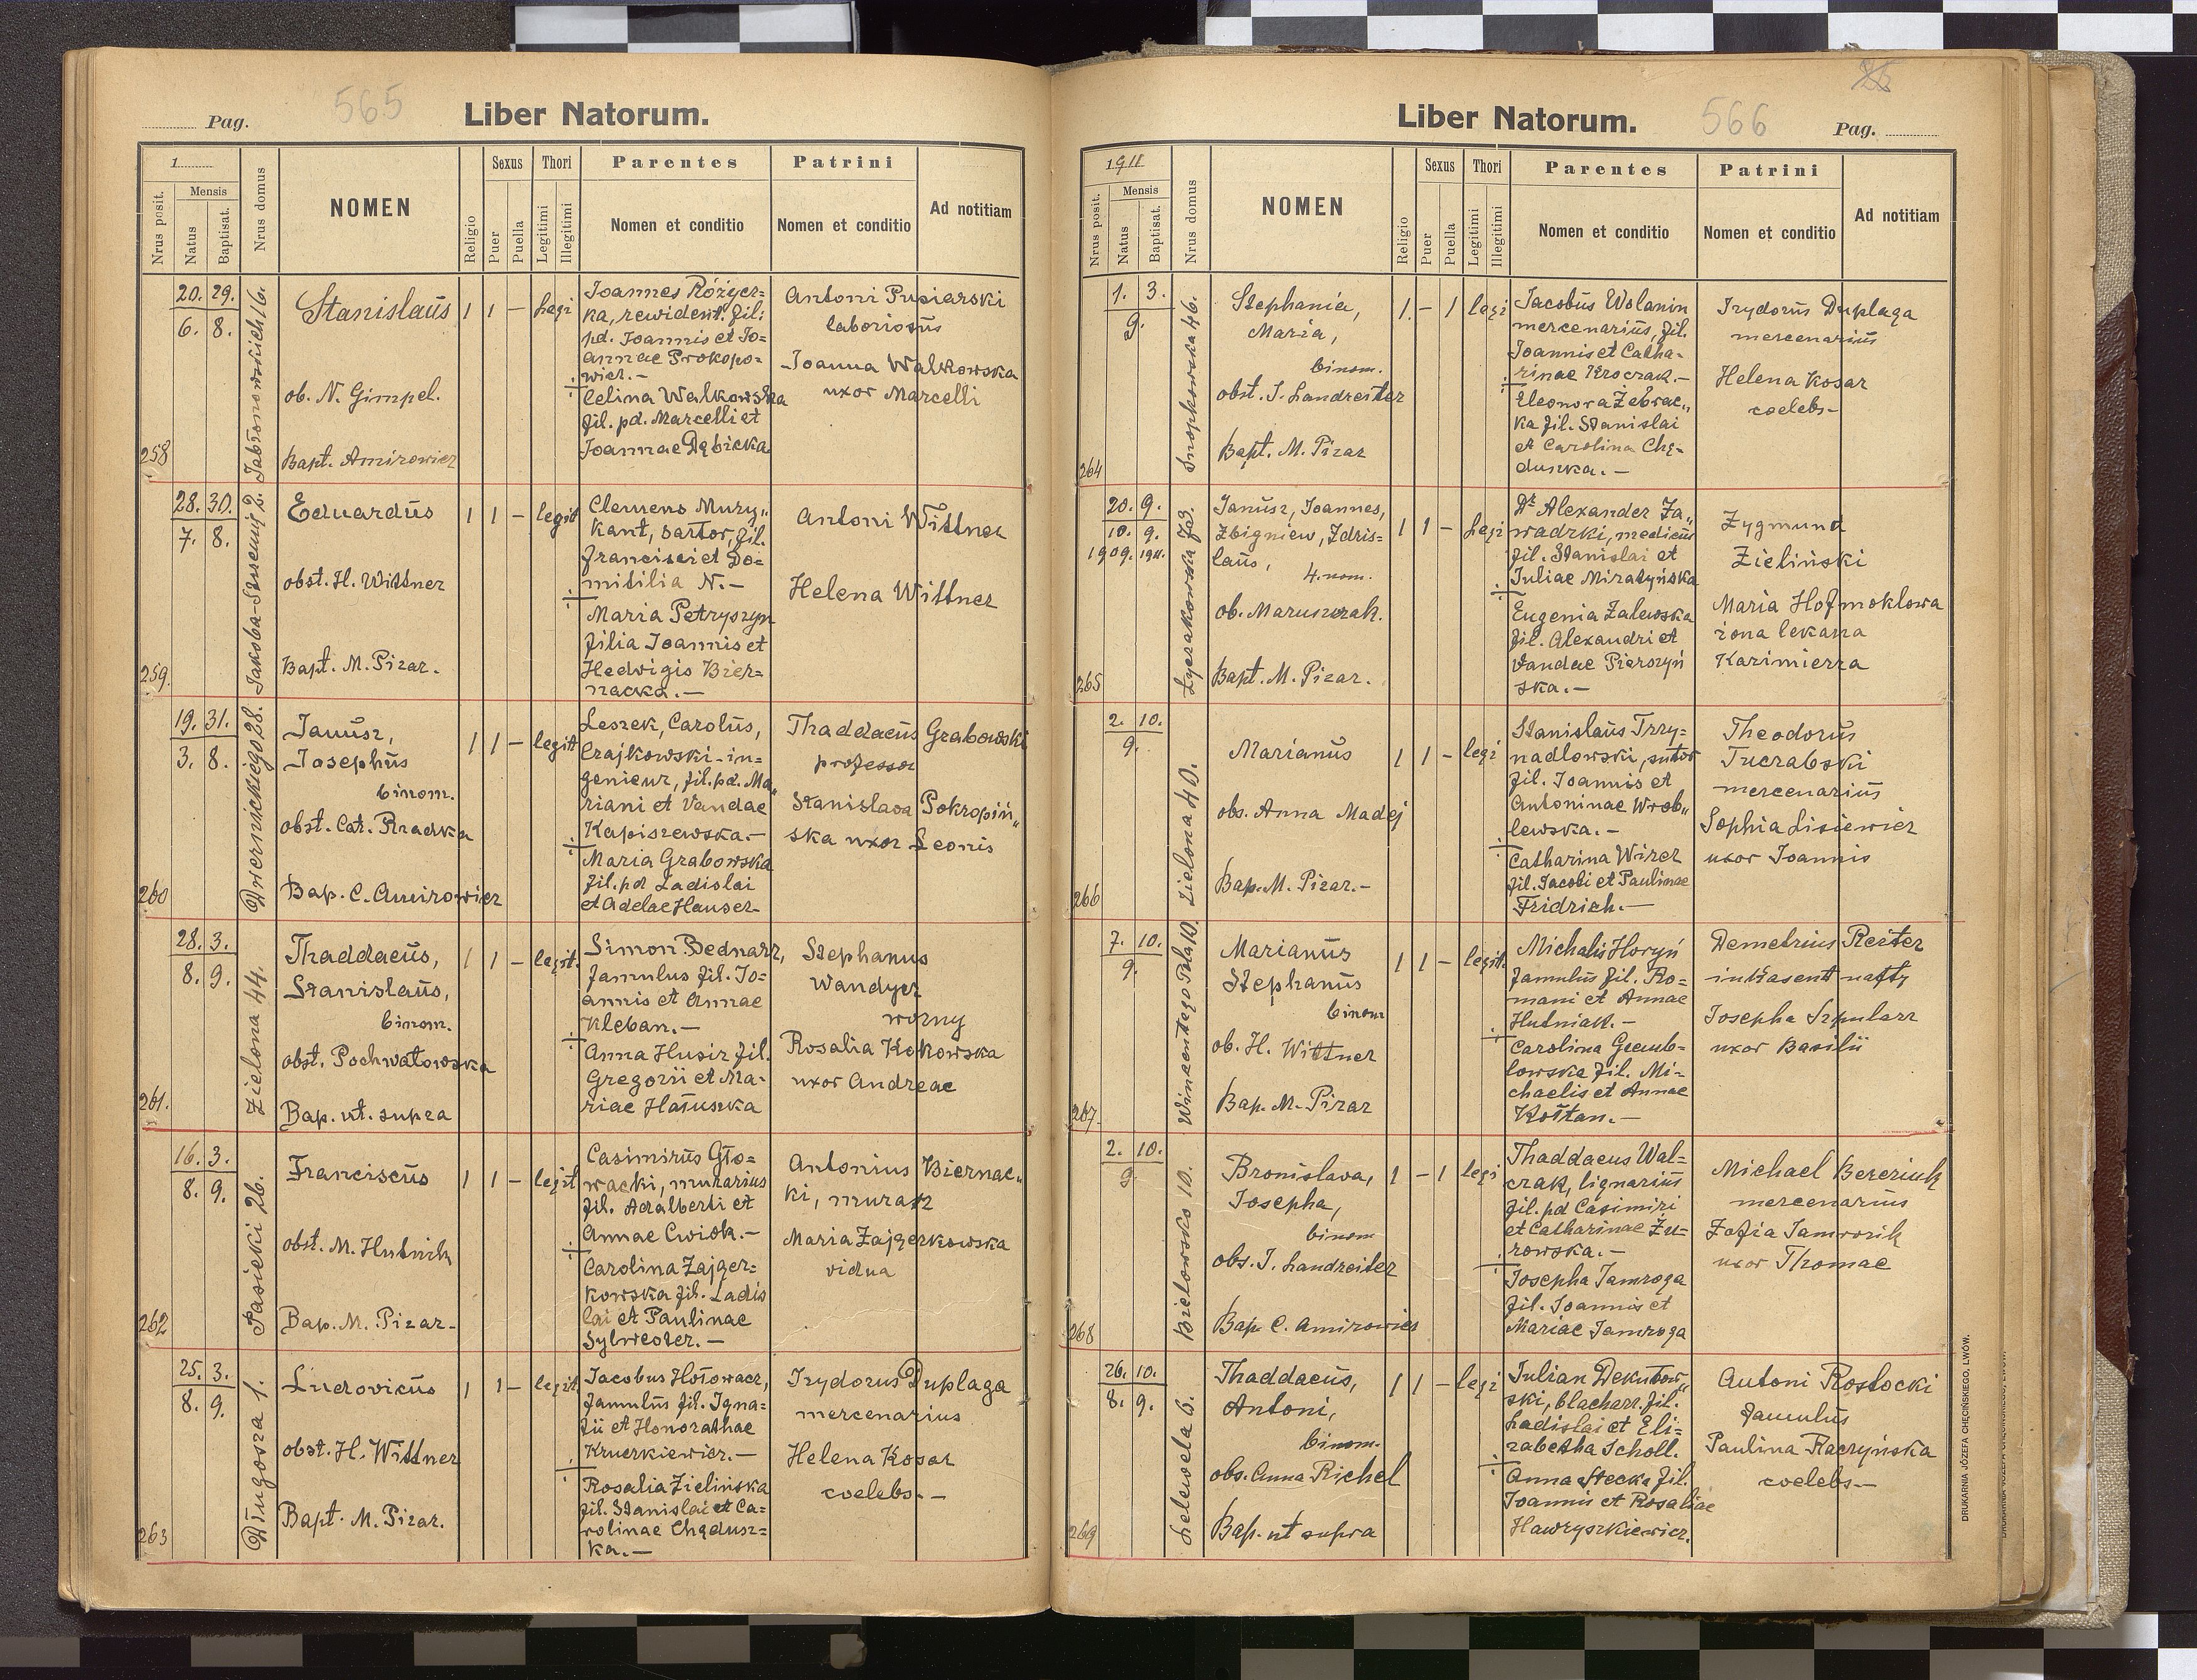 565
Pag.
Liber Natorum.
1
Nrus posit.
Mensis
Natus
Baptisat.
Nrus domus
NOMEN
Religio
Sexus
Puer
Puella
Thori
Legitimi
Illegitimi
Parentes
Nomen et conditio
Patrini
Nomen et conditio
Ad notitiam
258
20. 29.
6. 8.
Jabłonowskich 16.
Stanislaus
ob. N. Gimpel.
Bapt. Amirowicz
1 1 - Legi
Joannes Różyc=
ka, rewident. fil:
pd. Joannis et Jo=
annae Prokopo=
wicz. -
Celina Walkowska
fil. pd. Marcelli et
Joannae Dębicka
Antoni Pusiarski
laboriosus
Joanna Walkowska
uxor Marcelli
259.
28. 30.
7. 8.
Jakoba-Strzemię 2.
Eduardus
obst. H. Wittner
Bapt. M. Pizar.
1 1 - legit
Clemens Mury„
kant, sartor, fil.
Francisci et Do=
mitilia N. -
Maria Petryszyn
filia Joannis et
Hedvigis Bier=
nacka. -
Antoni Wittner
Helena Wittner
260
19. 31.
3. 8.
Dwernickiego 28.
Janusz,
Josephus
binom.
obst. Cat. Rradka
Bap. C. Amirowicz
1 1 - legit
Leszek, Carolus,
Czajkowski - in=
genieur, fil. pd. Ma„
riani et Vandae
Kapiszewska. -
Maria Grabowska
fil. pd Ladislai
et Adelae Hauser-
Thaddaeus Grabowski
professor
Stanislava Pokropiń„
ska uxor Leonis
261.
28. 3.
8. 9.
Zielona 44.
Thaddaeus,
Stanislaus,
binom.
obst. Pochwatowska
Bap. ut. supra
1 1 - legit.
Simon Bednarz,
famulus fil. Jo=
annis et Annae
Kleban. -
Anna Husiz fil.
Gregorii et Ma=
riae Hałuszka
Stephanus
Wandycz
wozny
Rosalia Kokowska
uxor Andreae
262
16. 3.
8. 9.
Pasieki 26.
Franciscus
obst. M. Hutnik
Bap. M. Pizar-
1 1 - legit
Casimirus Gło=
wacki, murarius
fil. Adalberti et
Annae Cwiok. -
Carolina Zajger=
kowska fil. Ladis
lai et Paulinae
Sylwester. -
Antonius Biernac„
ki, murarz
Maria Zajgerkowska
vidua
263
25. 3.
8. 9.
Długosza 1.
Ludovicus
obst. H. Wittner
Bapt. M. Pizar.
1 1 - legit.
Jacobus Hołowacz,
famulus fil. Igna=
tii et Honorathae
Kruczkiewicz. -
Rosalia Zielinska
fil. Stanislai et Ca=
rolinae Chędusz=
ka. -
Izydorus Duplaga
mercenarius
Helena Kosar
coelebs. -
Liber Natorum.
566
Pag.
1911
Nrus posit.
Mensis
Natus
Baptisat.
Nrus domus
NOMEN
Religio
Sexus
Puer
Puella
Thori
Legitimi
Illegitimi
Parentes
Nomen et conditio
Patrini
Nomen et conditio
Ad notitiam
264
1. 3.
9.
Snopkowska 46.
Stephania,
Maria,
binom.
obst. J. Landreiter
Bapt. M. Pizar
1. - 1 legi
Jacobus Wolanin
mercenarius, fil.
Joannis et Catha-
rinae Kroczak. -
Eleonora Żebrac„
ka fil. Stanislai
et Carolina Chę-
duszka. -
Izydorus Duplaga
mercenarius
Helena Kosar
coelebs-
265
20. 9.
10. 9.
1909. 1911.
Łyczakowska 73.
Janusz, Joannes,
Zbigniew, Zdzis=
laus,
4. nom.
ob. Maruszczak.
Bapt. M. Pizar.
1 1 - legi
Dr Alexander Za„
wadzki, medicus
fil. Stanislai et
Juliae Miratyńska
Eugenia Zalewska
fil. Alexandri et
Vandae Pierszyń
ska. -
Zygmund
Zieliński
Maria Hofmoklowa
żona lekarza
Kazimierza
266
2. 10.
9.
Zielona 40.
Marianus
obs. Anna Madej
Bap. M. Pizar. -
1 1 - legi
Stanislaus Trzy=
nadlowski, sutor
fil. Joannis et
Antoninae Wrob„
lewska. -
Catharina Wircz
fil. Jacobi et Paulinae
Fridrich. -
Theodorus
Tuczabski
mercenarius
Sophia Lisiewicz
uxor Joannis
267.
7. 10.
9.
Wincentego Pola 10.
Marianus
Stephanus
binom
ob. H. Wittner
Bap. M. Pizar
1 1 - legit.
Michalis Horyń
famulus fil. Ro=
mani et Annae
Hutniak. -
Carolina Gremb=
lowska fil. Mi=
chaelis et Annae
Kołtan. -
Demetrius Reiter
inkasent nafty
Josepha Szpularz
uxor Basilii
268
2. 10.
9.
Bielowsko 10.
Bronislava,
Josepha,
binom
obs. J. Landreiter
Bap C. Amirowicz
1 - 1 legi
Thaddaeus Wal=
czak, lignarius
fil. pd Casimiri
et Catharinae Żu=
rowska. -
Josepha Jamroga
fil. Joannis et
Mariae Jamroga
Michael Bereziuk
mercenarius
Zofia Jamrozik
uxor Thomae
269
26. 10.
8. 9.
Lelewela 6.
Thaddaeus,
Antoni,
binom.
obs. Anna Richel
Bap. ut supra
1 1 - legi
Julian Dekutow„
ski, blacharz. fil.
Ladislai et Eli=
zabetha Scholl.
Anna Stecka fil.
Joannis et Rosaliae
Hawryszkiewicz.
Antoni Rostocki
famulus
Paulina Raczyńska
coelebs-
DRUKARNIA JÓZEFA CHĘCIŃSKIEGO, LWÓW.